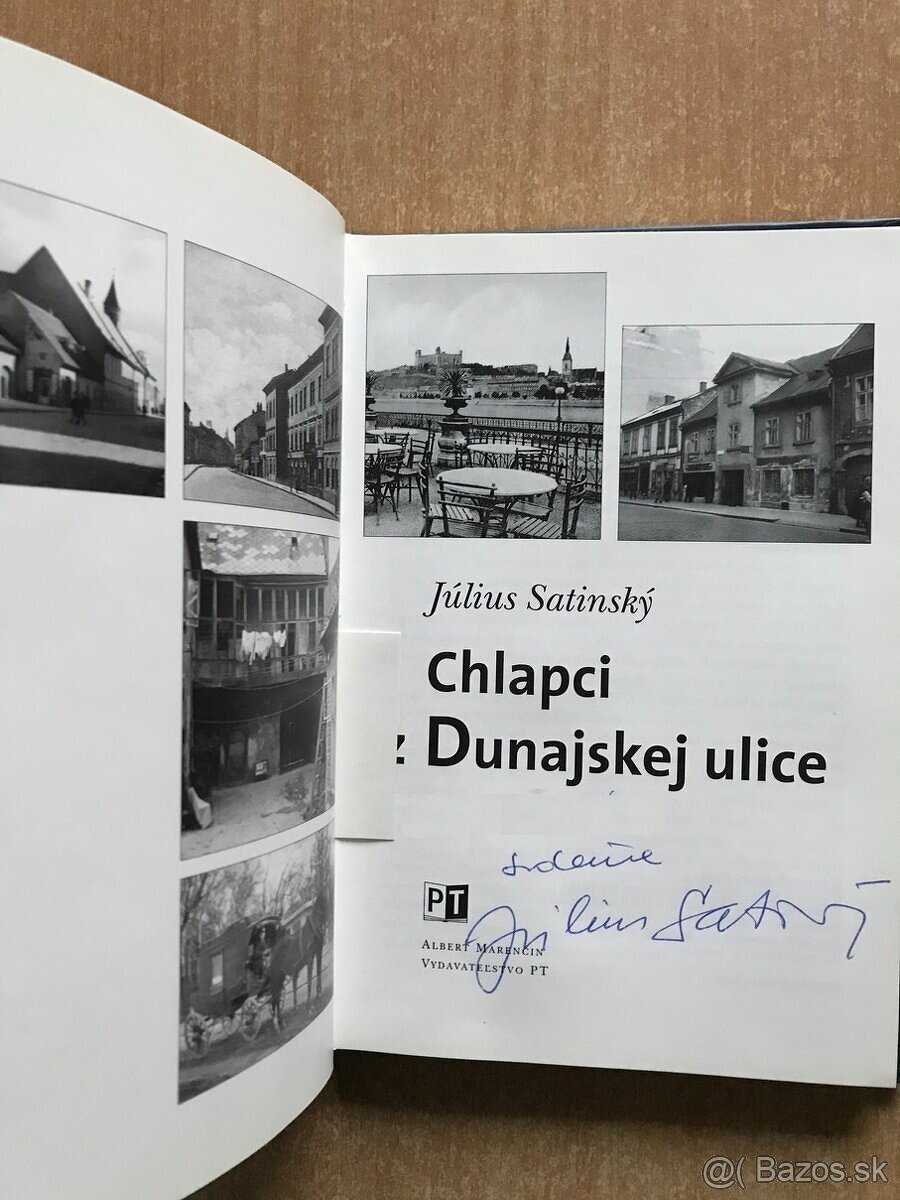 Július Satinský
Chlapci
z Dunajskej ulice
srdečne
Július Satinský
PT
ALBERT MARENČIN
VYDAVATEĽSTVO PT
@( Bazos.sk